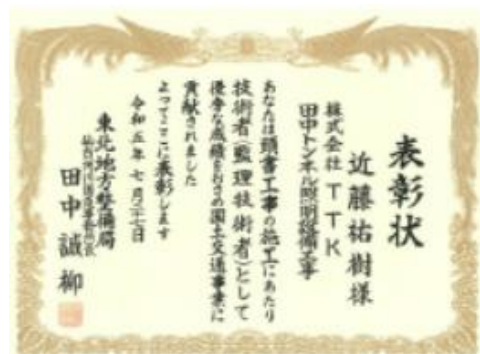 表彰状
近藤祐樹様
株式会社TTK
田中トンネル照明設備工事
あなたは頭書工事の施工にあたり
技術者(監理技術者)として
優秀な成績をおさめ国土交通事業に
貢献されました
よってここに表彰します
令和五年七月二十七日
東北地方整備局
田中誠柳